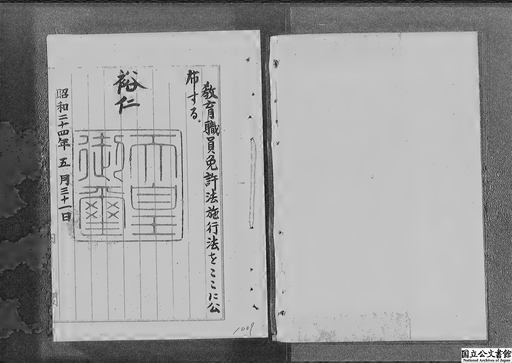 教育職員免許法施行法をここに公
布する。
裕仁
天皇
御璽
昭和二十四年五月三十一日
1008
国立公文書館
National Archives of Japan